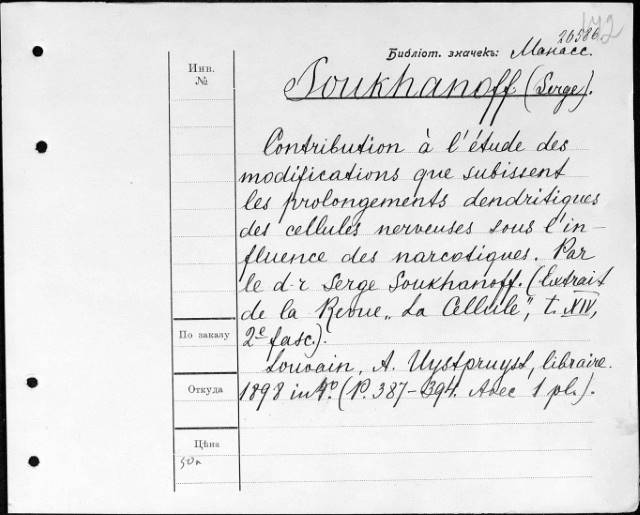 20586
172
Библіот. значекъ: Манасс.
Инв.
№
Soukhanoff (Serge).
Contribution à l'étude des
modifications que subissent
les prolongements dendritiques
des cellules nerveuses sous l'in-
fluence des narcotiques. Par
le d-r Serge Soukhanoff. (Extrait
de la Revue „La Cellule", t. XIV,
2e fasc.).
Louvain, A. Uystpruyst, libraire.
1898 in 4º. (P. 387-394. Avec 1 pl.).
По заказу
Откуда
Цѣна
50к